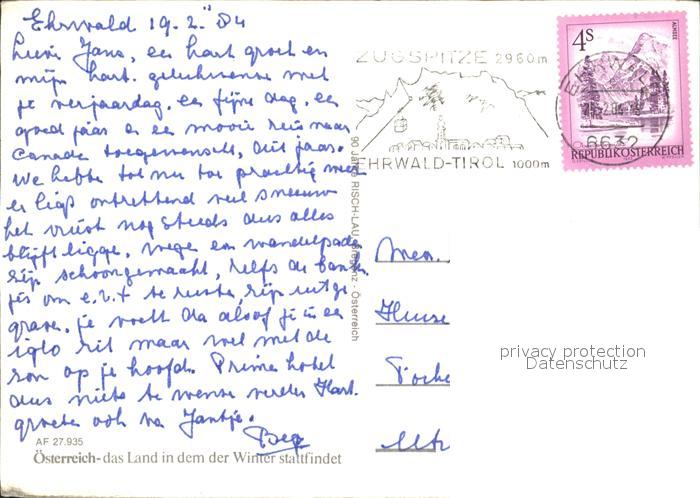 Ehrwald 19.2." 84
Lieve Jans, een hart. groet en
mijn hart. gelukwensen met
je verjaardag, een fijne dag, een
goed jaar en een mooie reis naar
Canada toegewenst, dit jaar.
We hebben tot nu toe prachtig weer
er ligt ontzettend veel sneeuw
het vriest nog steeds dus alles
blijft liggen, wegen en wandelpaden
zijn schoongemaakt, zelfs de bank
jes om e.v.t te rusten, zijn uitge
graven. je voelt da alsof je in een
iglo zit maar wel met de
zon op je hoofd. Prima hotel
dus niets te wensen verder. Hart.
groeten ook van Jantje.
Bep
AF 27.935
Österreich - das Land in dem der Winter stattfindet
90 Jahre RISCH-LAU, Bregenz - Österreich
ZUGSPITZE 2960m
EHRWALD-TIROL 1000m
4s
ALMSEE
REPUBLIK ÖSTERREICH
EHRWALD
6632
Mevr.
Huize
privacy protection
Datenschutz